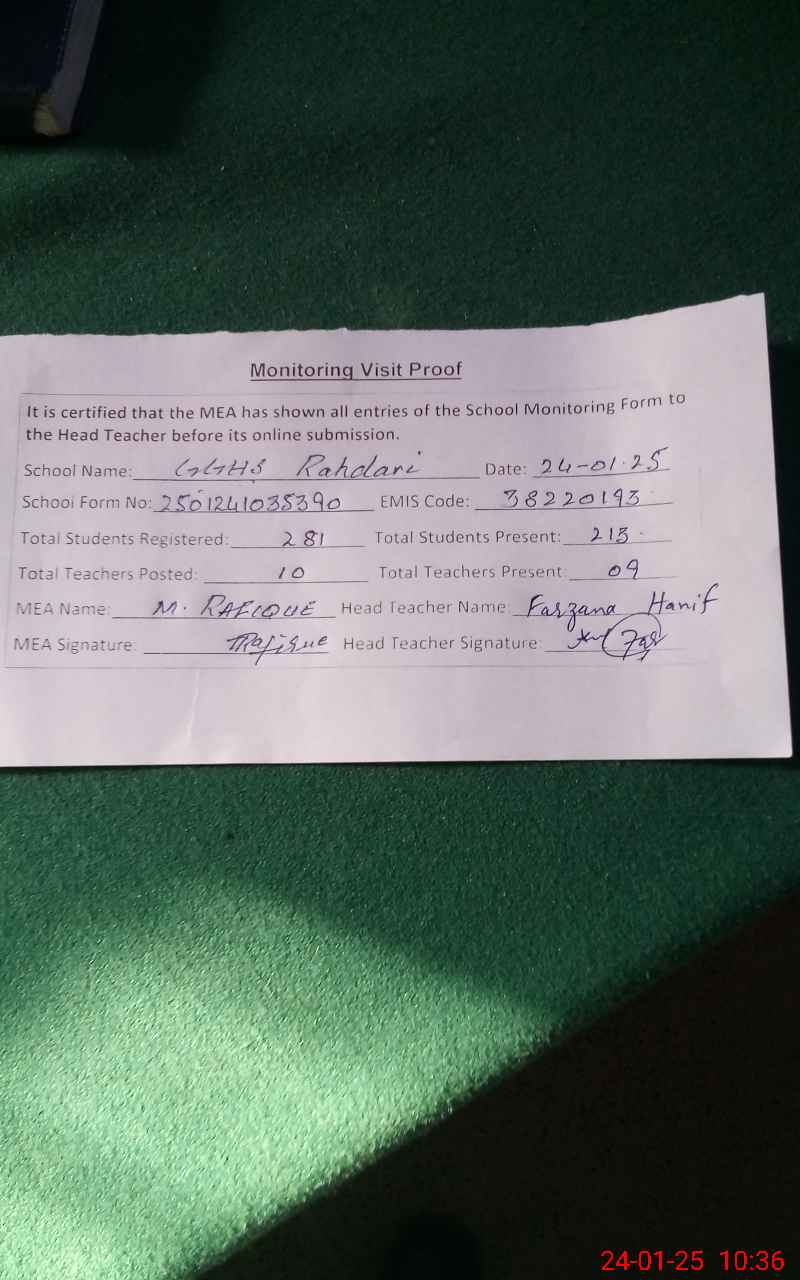 Monitoring Visit Proof
It is certified that the MEA has shown all entries of the School Monitoring Form to
the Head Teacher before its online submission.
School Name: GGHS Rahdari Date: 24-01-25
School Form No: 2501241035390 EMIS Code: 38220193
Total Students Registered: 281 Total Students Present: 213
Total Teachers Posted: 10 Total Teachers Present: 09
MEA Name: M. RAFIQUE Head Teacher Name: Farzana Hanif
MEA Signature: MRafique Head Teacher Signature:
24-01-25 10:36